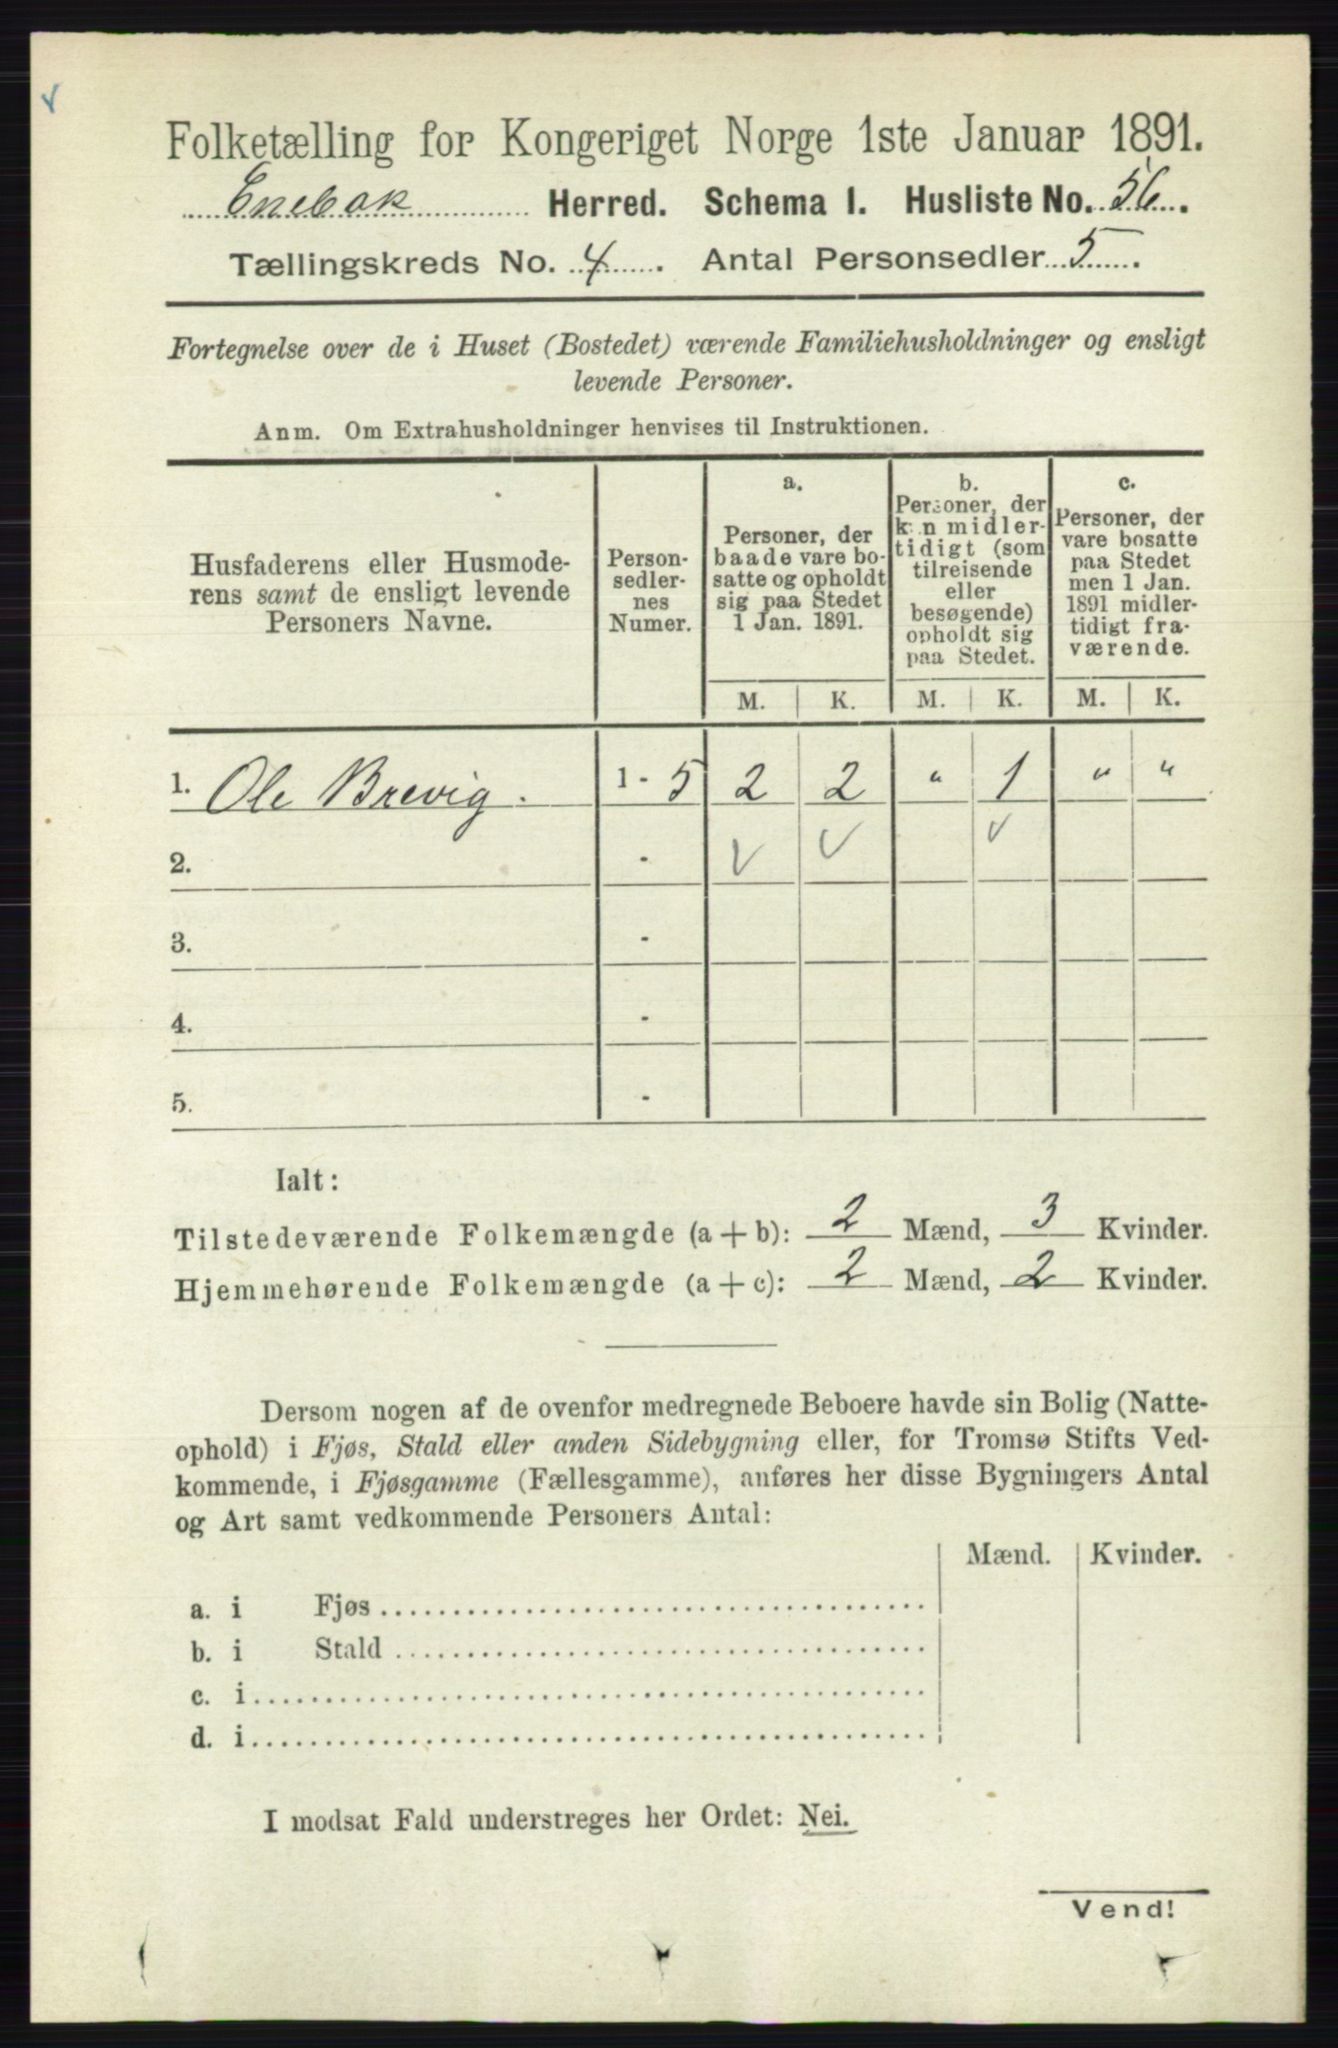 Folketælling for Kongeriget Norge 1ste Januar 1891.
Enebak Herred. Schema 1. Husliste No. 56.
Tællingskreds No. 4. Antal Personsedler 5.
Fortegnelse over de i Huset (Bostedet) værende Familiehusholdninger og ensligt
levende Personer.
Anm. Om Extrahusholdninger henvises til Instruktionen.
Husfaderens eller Husmode-
rens samt de ensligt levende
Personers Navne.
Person-
sedler-
nes
Numer.
a.
Personer, der
baade vare bo-
satte og opholdt
sig paa Stedet
1 Jan. 1891.
b.
Personer, der
kun midler-
tidigt (som
tilreisende
eller
besøgende)
opholdt sig
paa Stedet.
c.
Personer, der
vare bosatte
paa Stedet
men 1 Jan.
1891 midler-
tidigt fra-
værende.
M. K. M. K. M. K.
1. Ole Brevig. 1 - 5 2 2 " 1 " "
2. -
3. -
4. -
5. -
Ialt:
Tilstedeværende Folkemængde (a + b): 2 Mænd, 3 Kvinder.
Hjemmehørende Folkemængde (a + c): 2 Mænd, 2 Kvinder.
Dersom nogen af de ovenfor medregnede Beboere havde sin Bolig (Natte-
ophold) i Fjøs, Stald eller anden Sidebygning eller, for Tromsø Stifts Ved-
kommende, i Fjøsgamme (Fællesgamme), anføres her disse Bygningers Antal
og Art samt vedkommende Personers Antal:
Mænd. Kvinder.
a. i Fjøs
b. i Stald
c. i
d. i
I modsat Fald understreges her Ordet: Nei.
Vend!